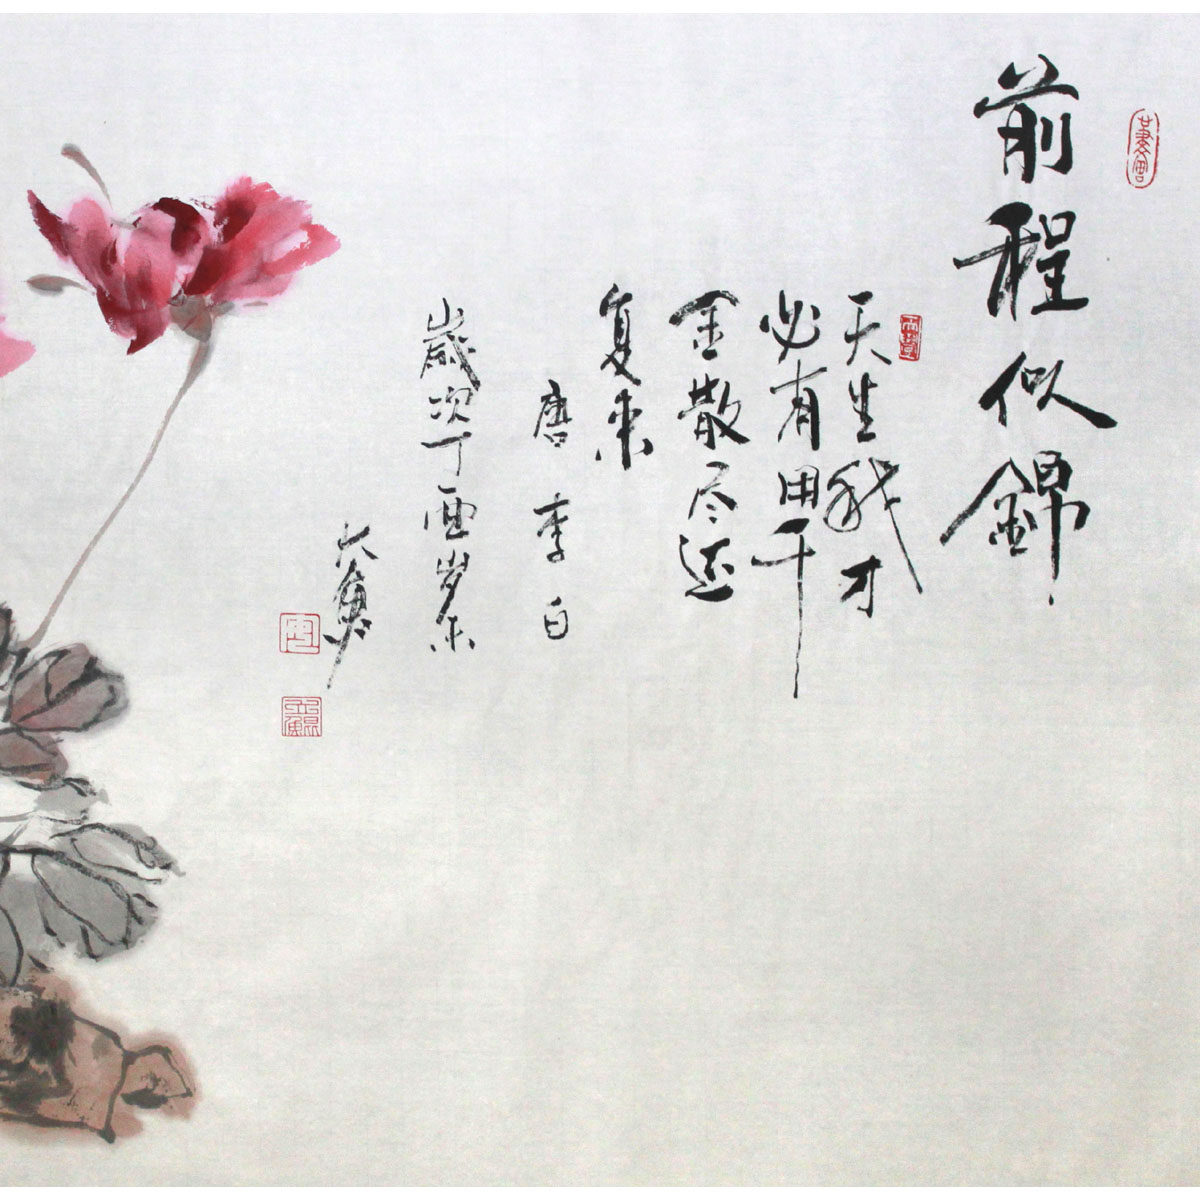 前程似錦
天生我才
必有用千
金散尽还
复来
唐李白
歲次丁酉岁末